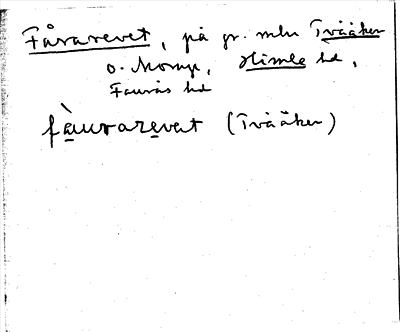 Fårarevet, på gr. mln Tvååker
o. Morup, Himle hd,
Faurås hd
fàurarevat (Tvååker)